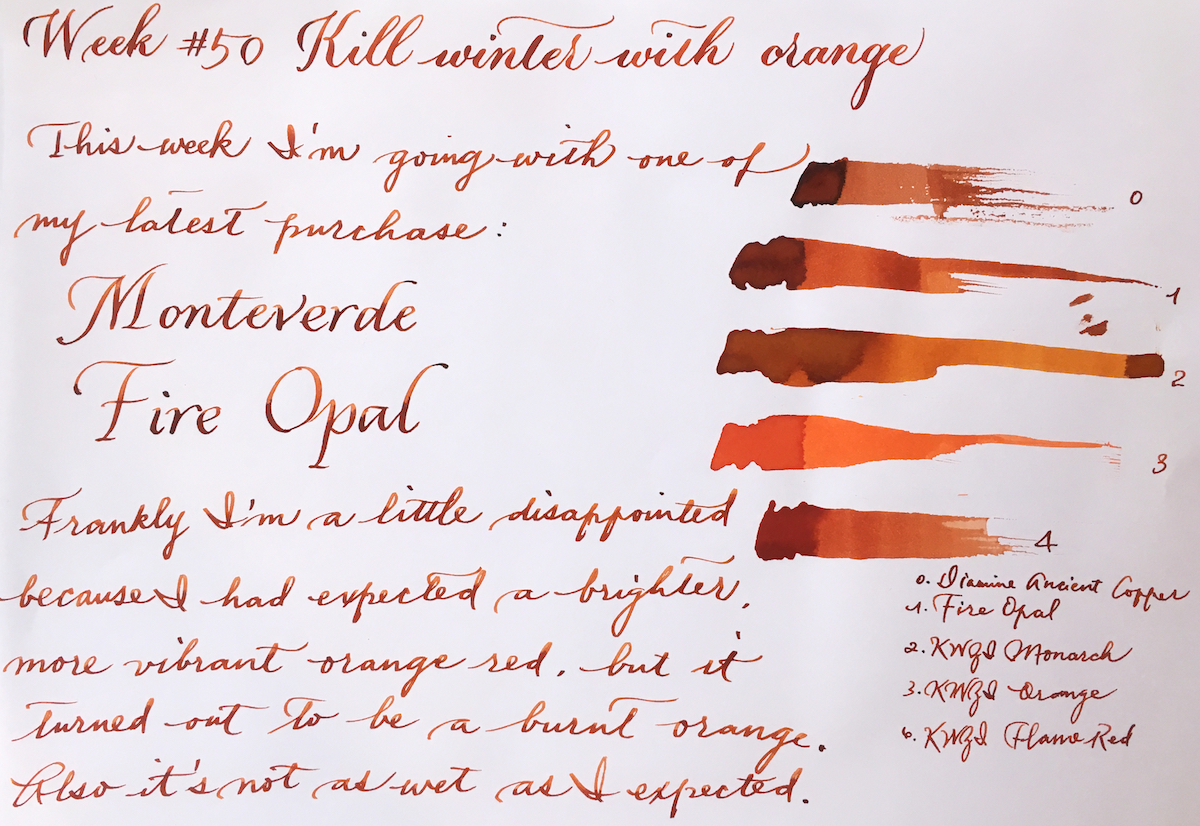 Week #50 Kill winter with orange
This week I'm going with one of
my latest purchase:
Monteverde
Fire Opal
Frankly I'm a little disappointed
because I had expected a brighter,
more vibrant orange red, but it
turned out to be a burnt orange.
Also it's not as wet as I expected.
0
1
2
3
4
0. Diamine Ancient Copper
1. Fire Opal
2. KWZI Monarch
3. KWZI Orange
6. KWZI Flame Red